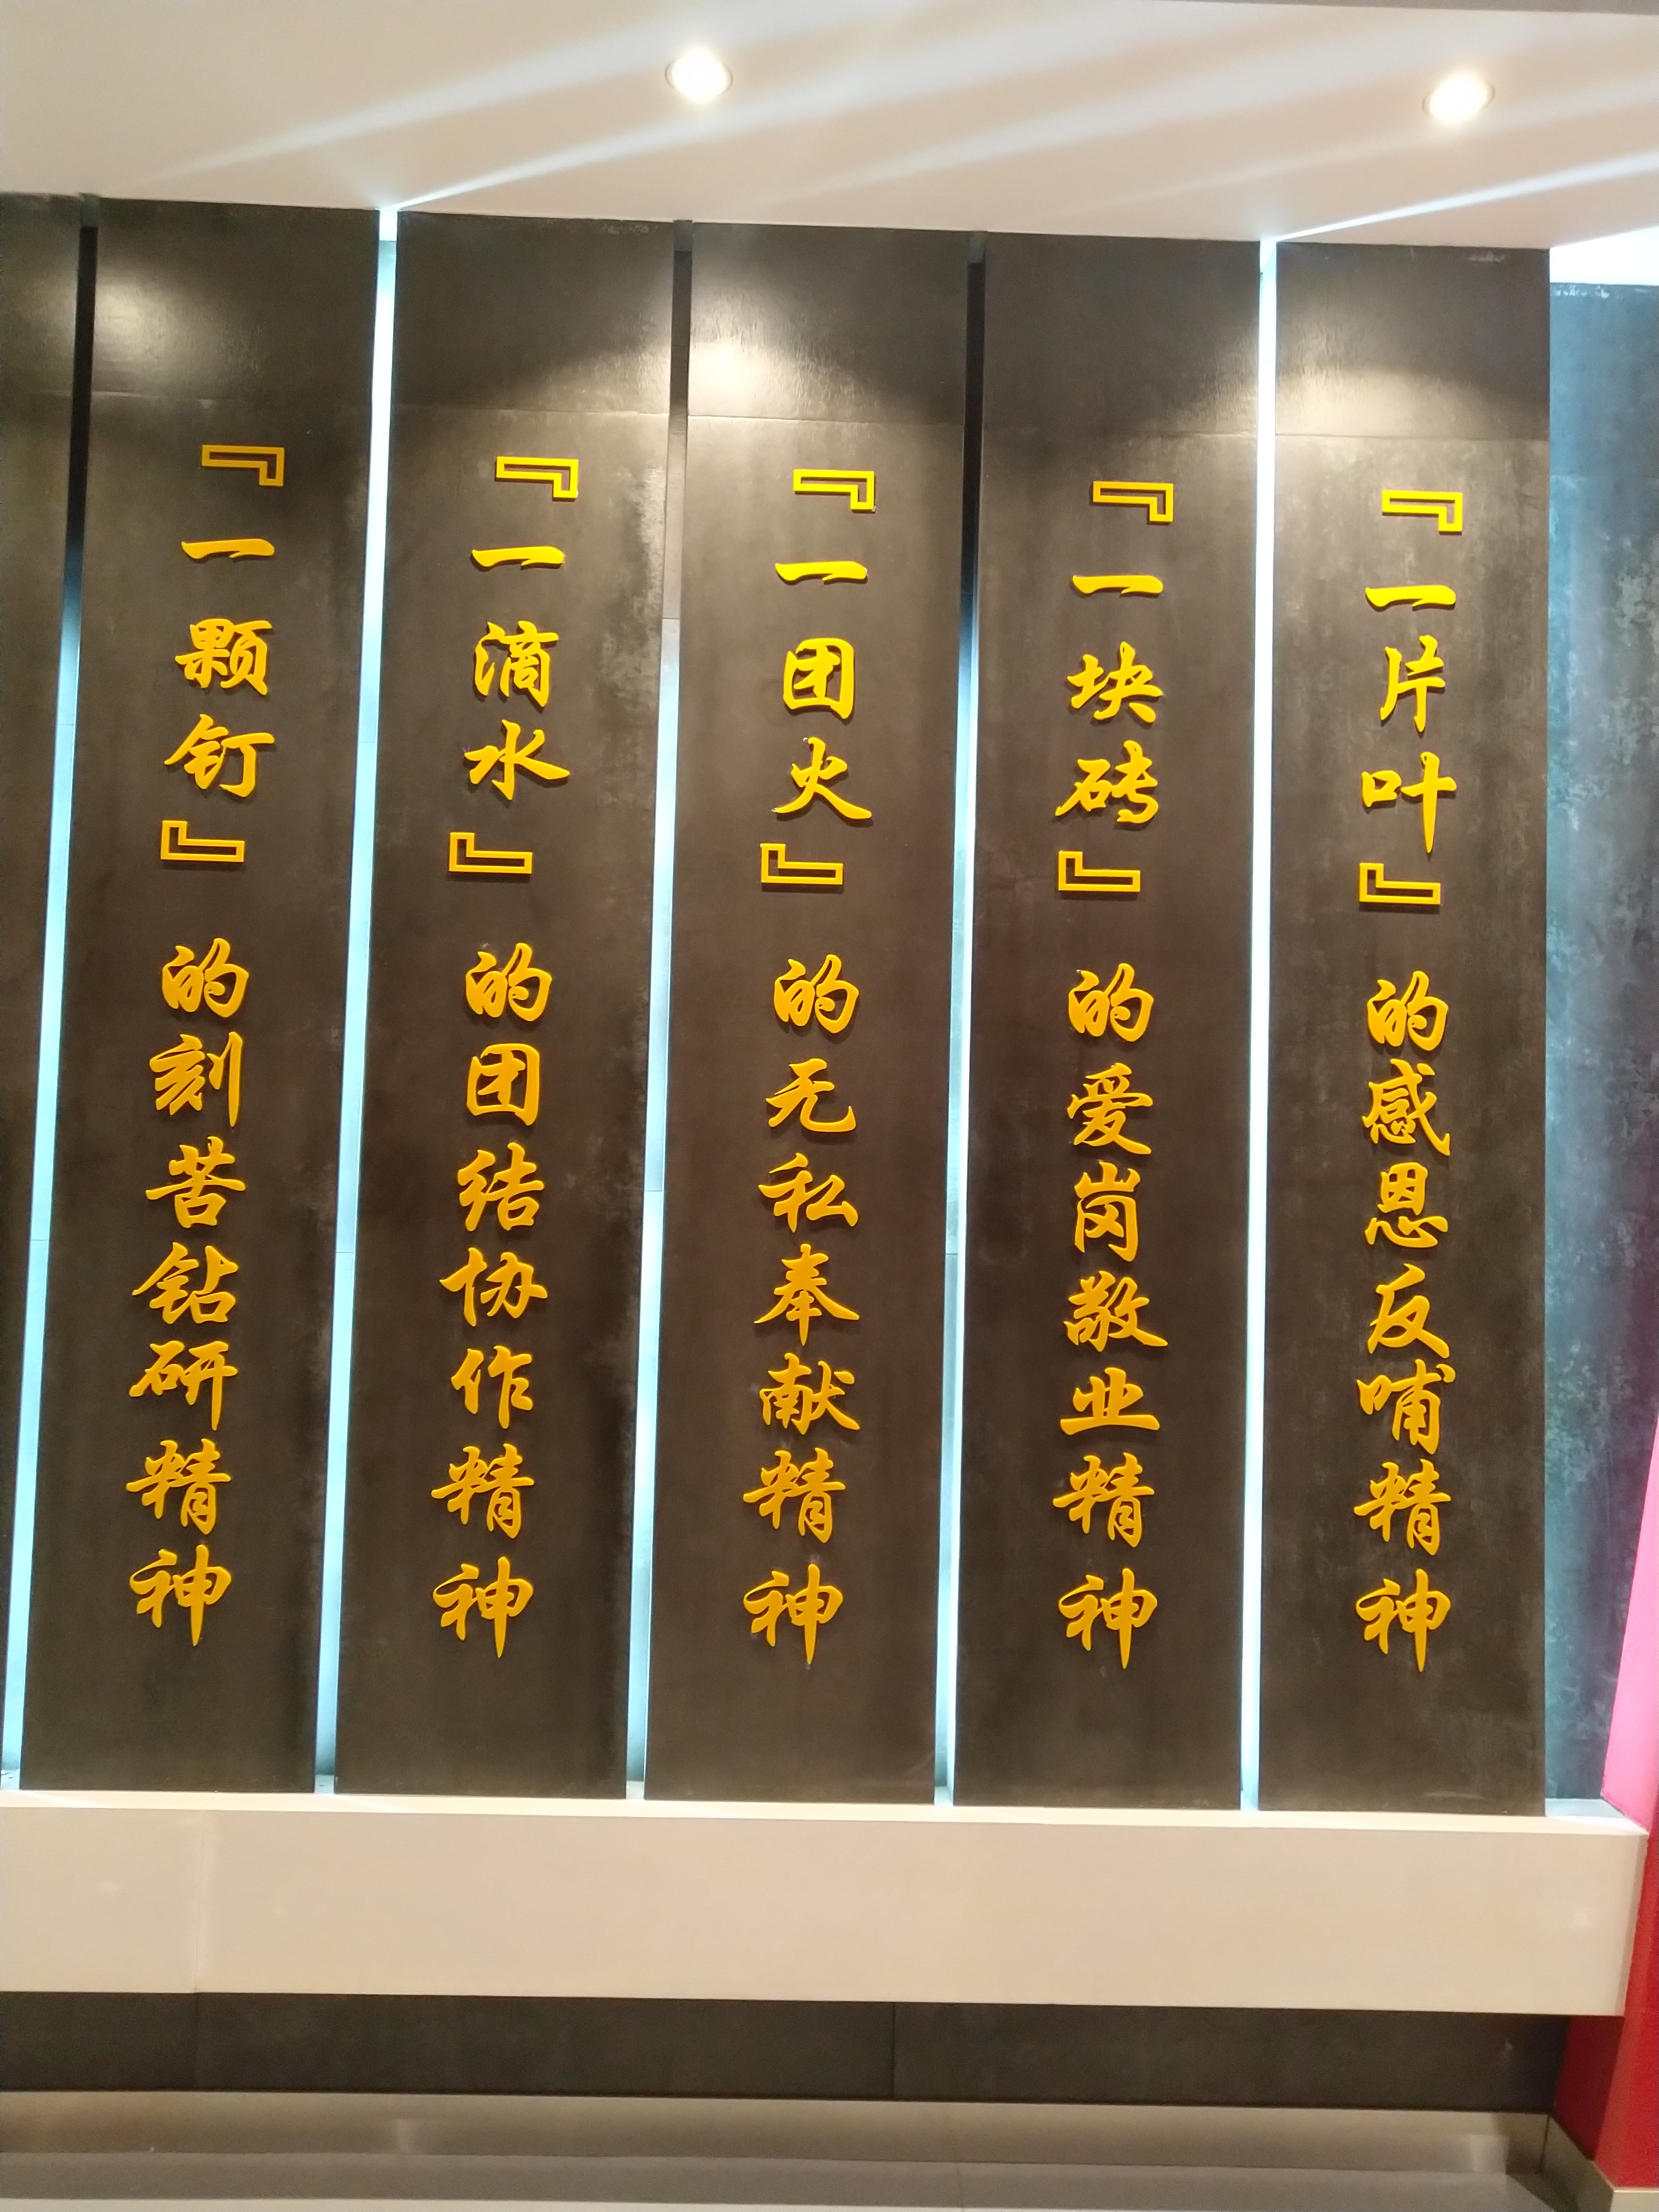 『一颗钉』的刻苦钻研精神
『一滴水』的团结协作精神
『一团火』的无私奉献精神
『一块砖』的爱岗敬业精神
『一片叶』的感恩反哺精神